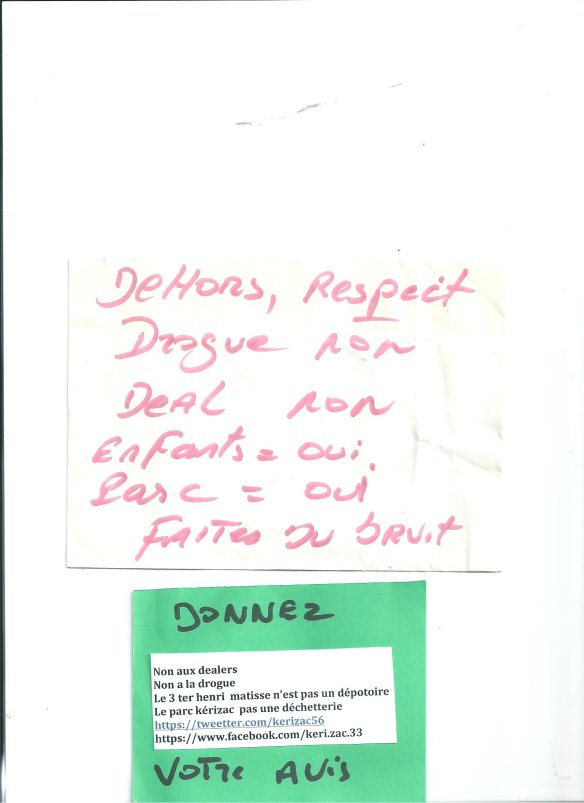 Dehors, Respect
Drogue non
Deal non
Enfants = oui.
Parc = oui
Faites du bruit
DONNEZ
Non aux dealers
Non a la drogue
Le 3 ter henri matisse n'est pas un dépotoire
Le parc kérizac pas une déchetterie
https://tweetter.com/kerizac56
https://www.facebook.com/keri.zac.33
VOTre AVis